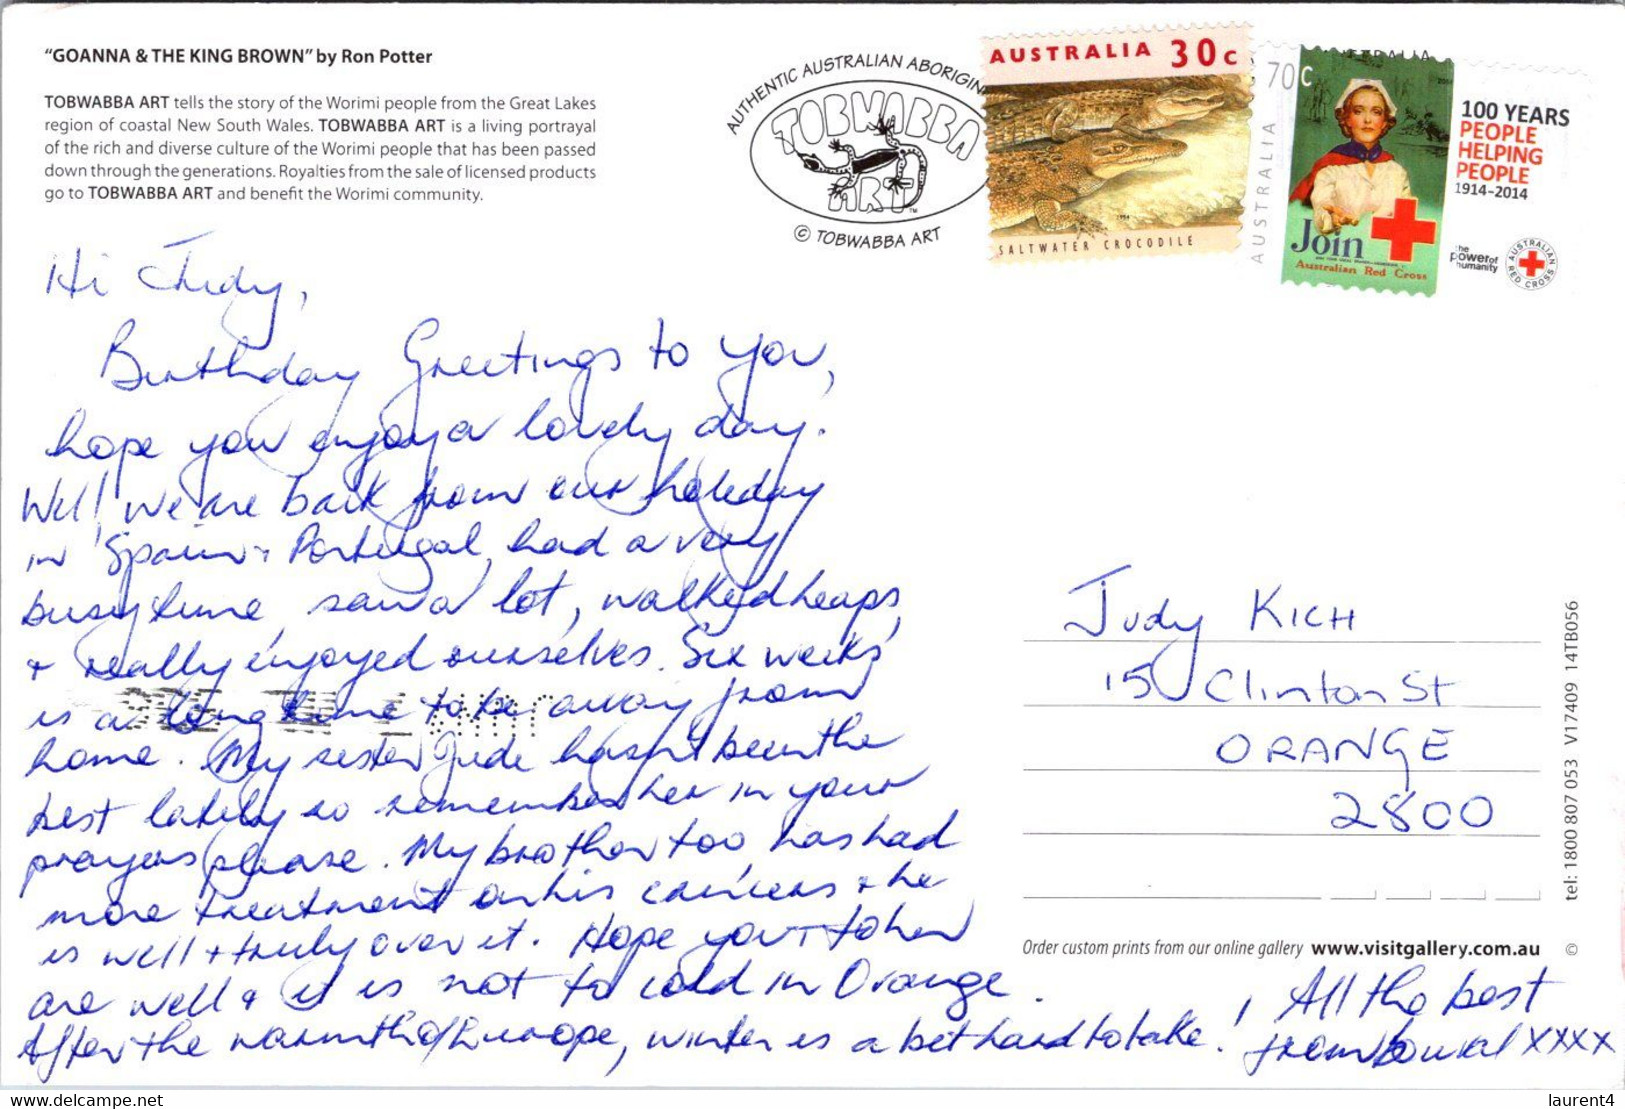 "GOANNA & THE KING BROWN" by Ron Potter
TOBWABBA ART tells the story of the Worimi people from the Great Lakes
region of coastal New South Wales. TOBWABBA ART is a living portrayal
of the rich and diverse culture of the Worimi people that has been passed
down through the generations. Royalties from the sale of licensed products
go to TOBWABBA ART and benefit the Worimi community.
AUTHENTIC AUSTRALIAN ABORIGIN
TOBWABBA
ART™
© TOBWABBA ART
AUSTRALIA 30c
1994
SALTWATER CROCODILE
AUSTRALIA
70c
AUSTRALIA
Join
Australian Red Cross
100 YEARS
PEOPLE
HELPING
PEOPLE
1914-2014
the
powerof
humanity
AUSTRALIAN
RED CROSS
Hi Judy,
Birthday Greetings to you,
hope you enjoy a lovely day.
Well we are back from our holiday
in Spain + Portugal, had a very
busy time, saw a lot, walked heaps,
+ really enjoyed ourselves. Six weeks
is a long time to be away from
home. My sister Jude hasn't been the
best lately so remember her in your
prayers please. My brother too has had
more treatment on his cancers + he
is well + truly over it. Hope you + John
are well + it is not to cold in Orange.
After the warmth of Europe, winter is a bit hard to take!
All the best
from xxxx
Judy KICH
15 Clinton St
ORANGE
2800
Order custom prints from our online gallery www.visitgallery.com.au ©
tel: 1800 807 053 V17409 14TB056
delcampe.net
laurent4